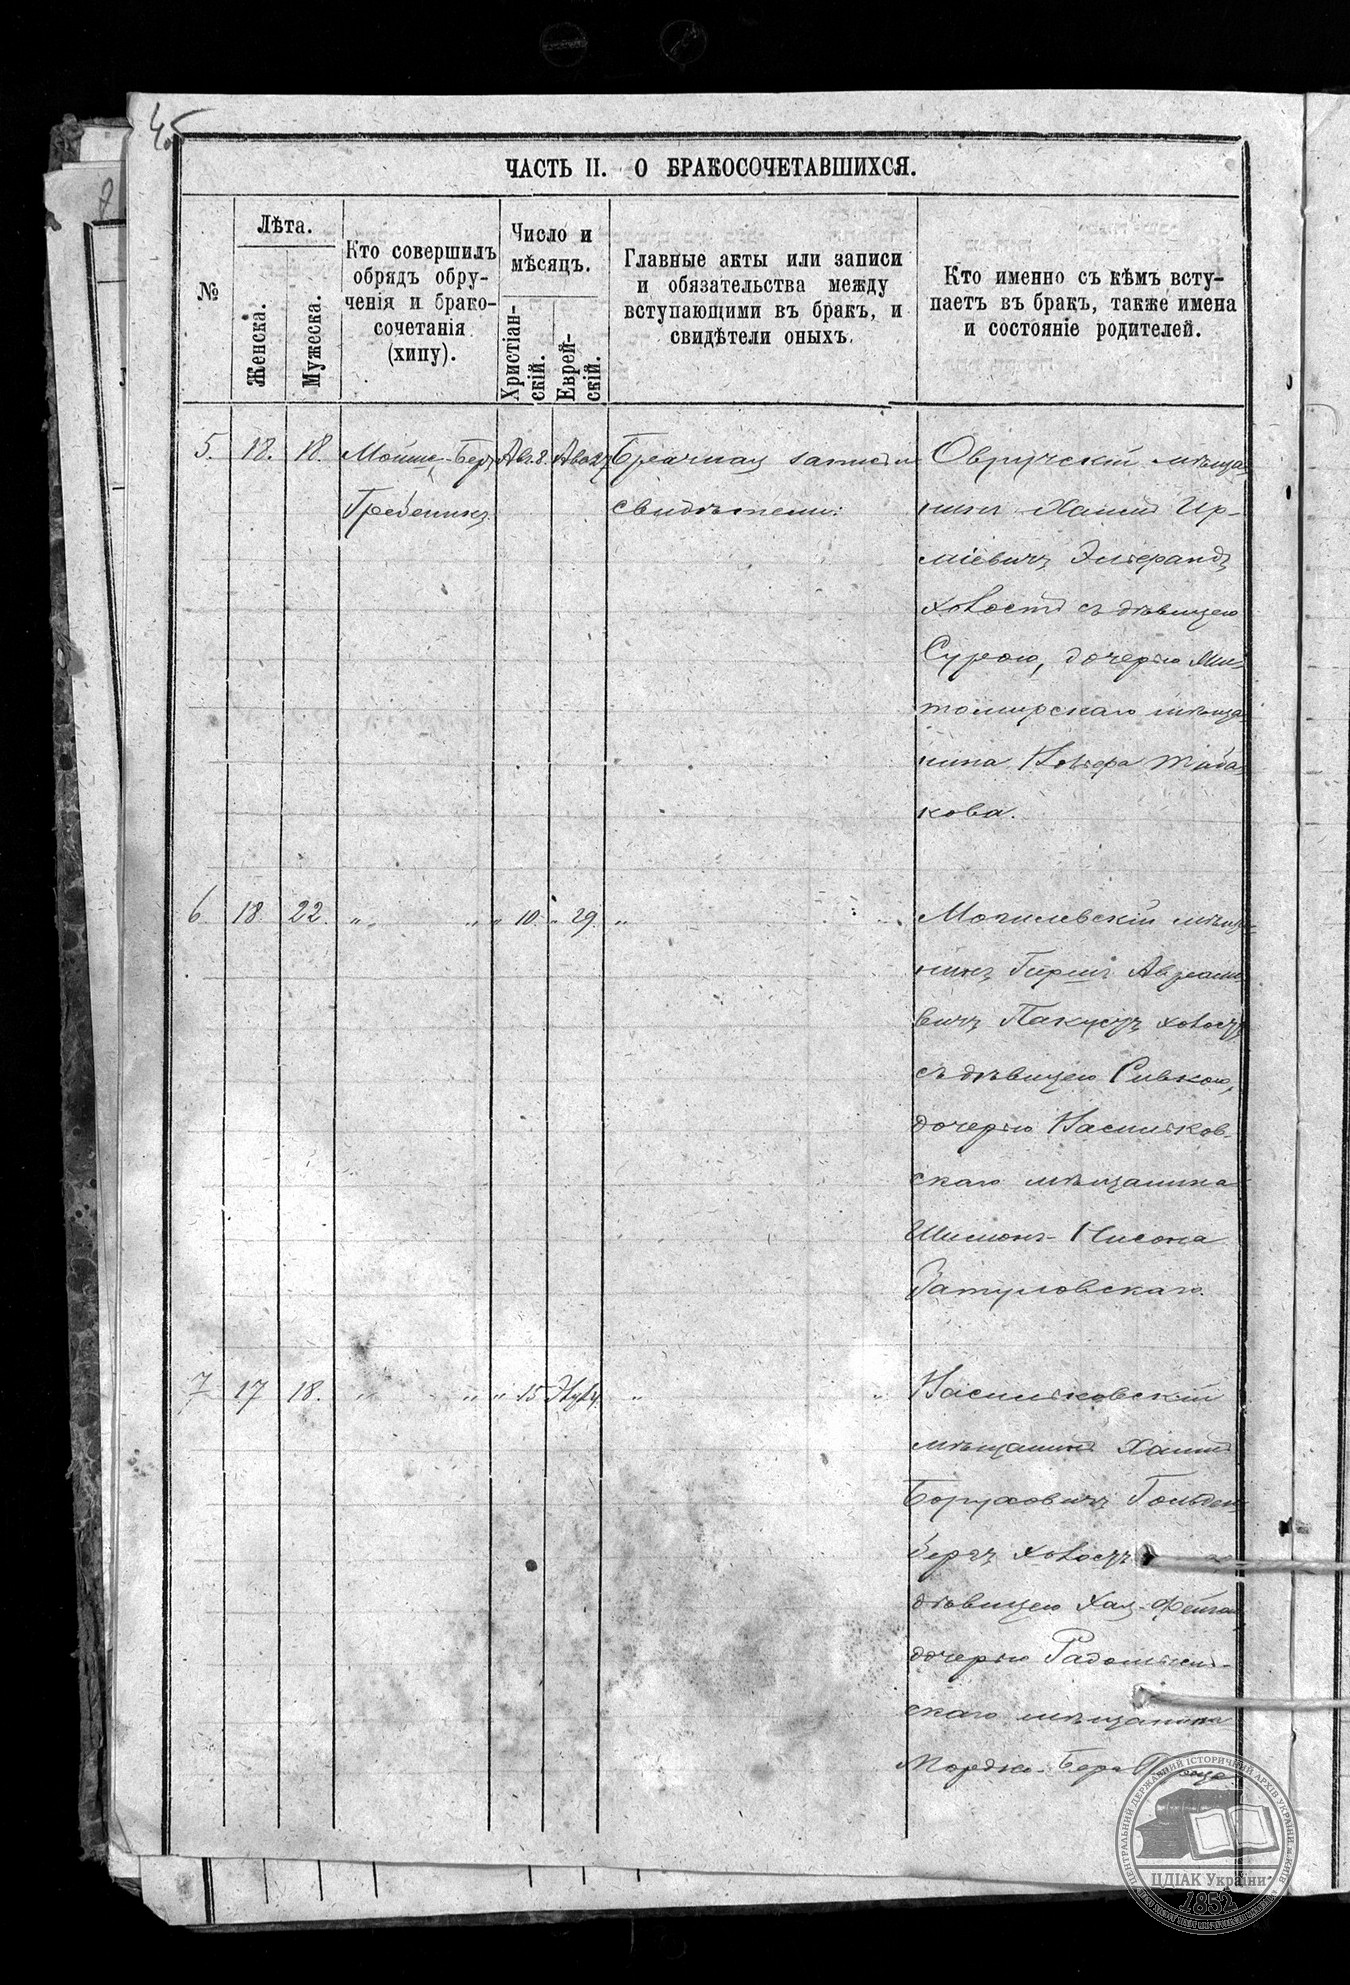 45
ЧАСТЬ II. О БРАКОСОЧЕТАВШИХСЯ.
№
Лѣта.
Женска.
Мужеска.
Кто совершилъ
обрядъ обру-
ченія и брако-
сочетанія
(хипу).
Число и
мѣсяцъ.
Христіан-
скій.
Еврей-
скій.
Главные акты или записи
и обязательства между
вступающими въ бракъ, и
свидѣтели оныхъ.
Кто именно съ кѣмъ всту-
паетъ въ бракъ, также имена
и состояніе родителей.
5. 18. 18. Мойше-Беръ Авг. 8. Ава 27 Брачная запись и
Гребенникъ свидѣтели:
Овручскій мѣща-
нинъ Хаимъ Ир-
міевичъ
холостъ съ дѣвицею
Сурою, дочерью Жи-
томирскаго мѣща-
нина Таба-
кова.
6 18. 22. „ „ „ 10. „ 29. „ „
Могилевскій мѣща-
нинъ Гершъ Авраамо-
вичъ холостъ
съ дѣвицею Ривкою,
дочерью Васильков-
скаго мѣщанина
Шимонъ-Нисона
Ватуловскаго.
7 17 18. „ „ „ 15 „ „
Васильковскій
мѣщанинъ Хаимъ
Боруховичъ Гольден-
бергъ холостъ
дѣвицею Хая-Фейгою,
дочерью Радомысль-
скаго мѣщанина
Мордко-Бера
ЦЕНТРАЛЬНИЙ ДЕРЖАВНИЙ ІСТОРИЧНИЙ АРХІВ УКРАЇНИ, м. КИЇВ
ЦДІАК України
1852